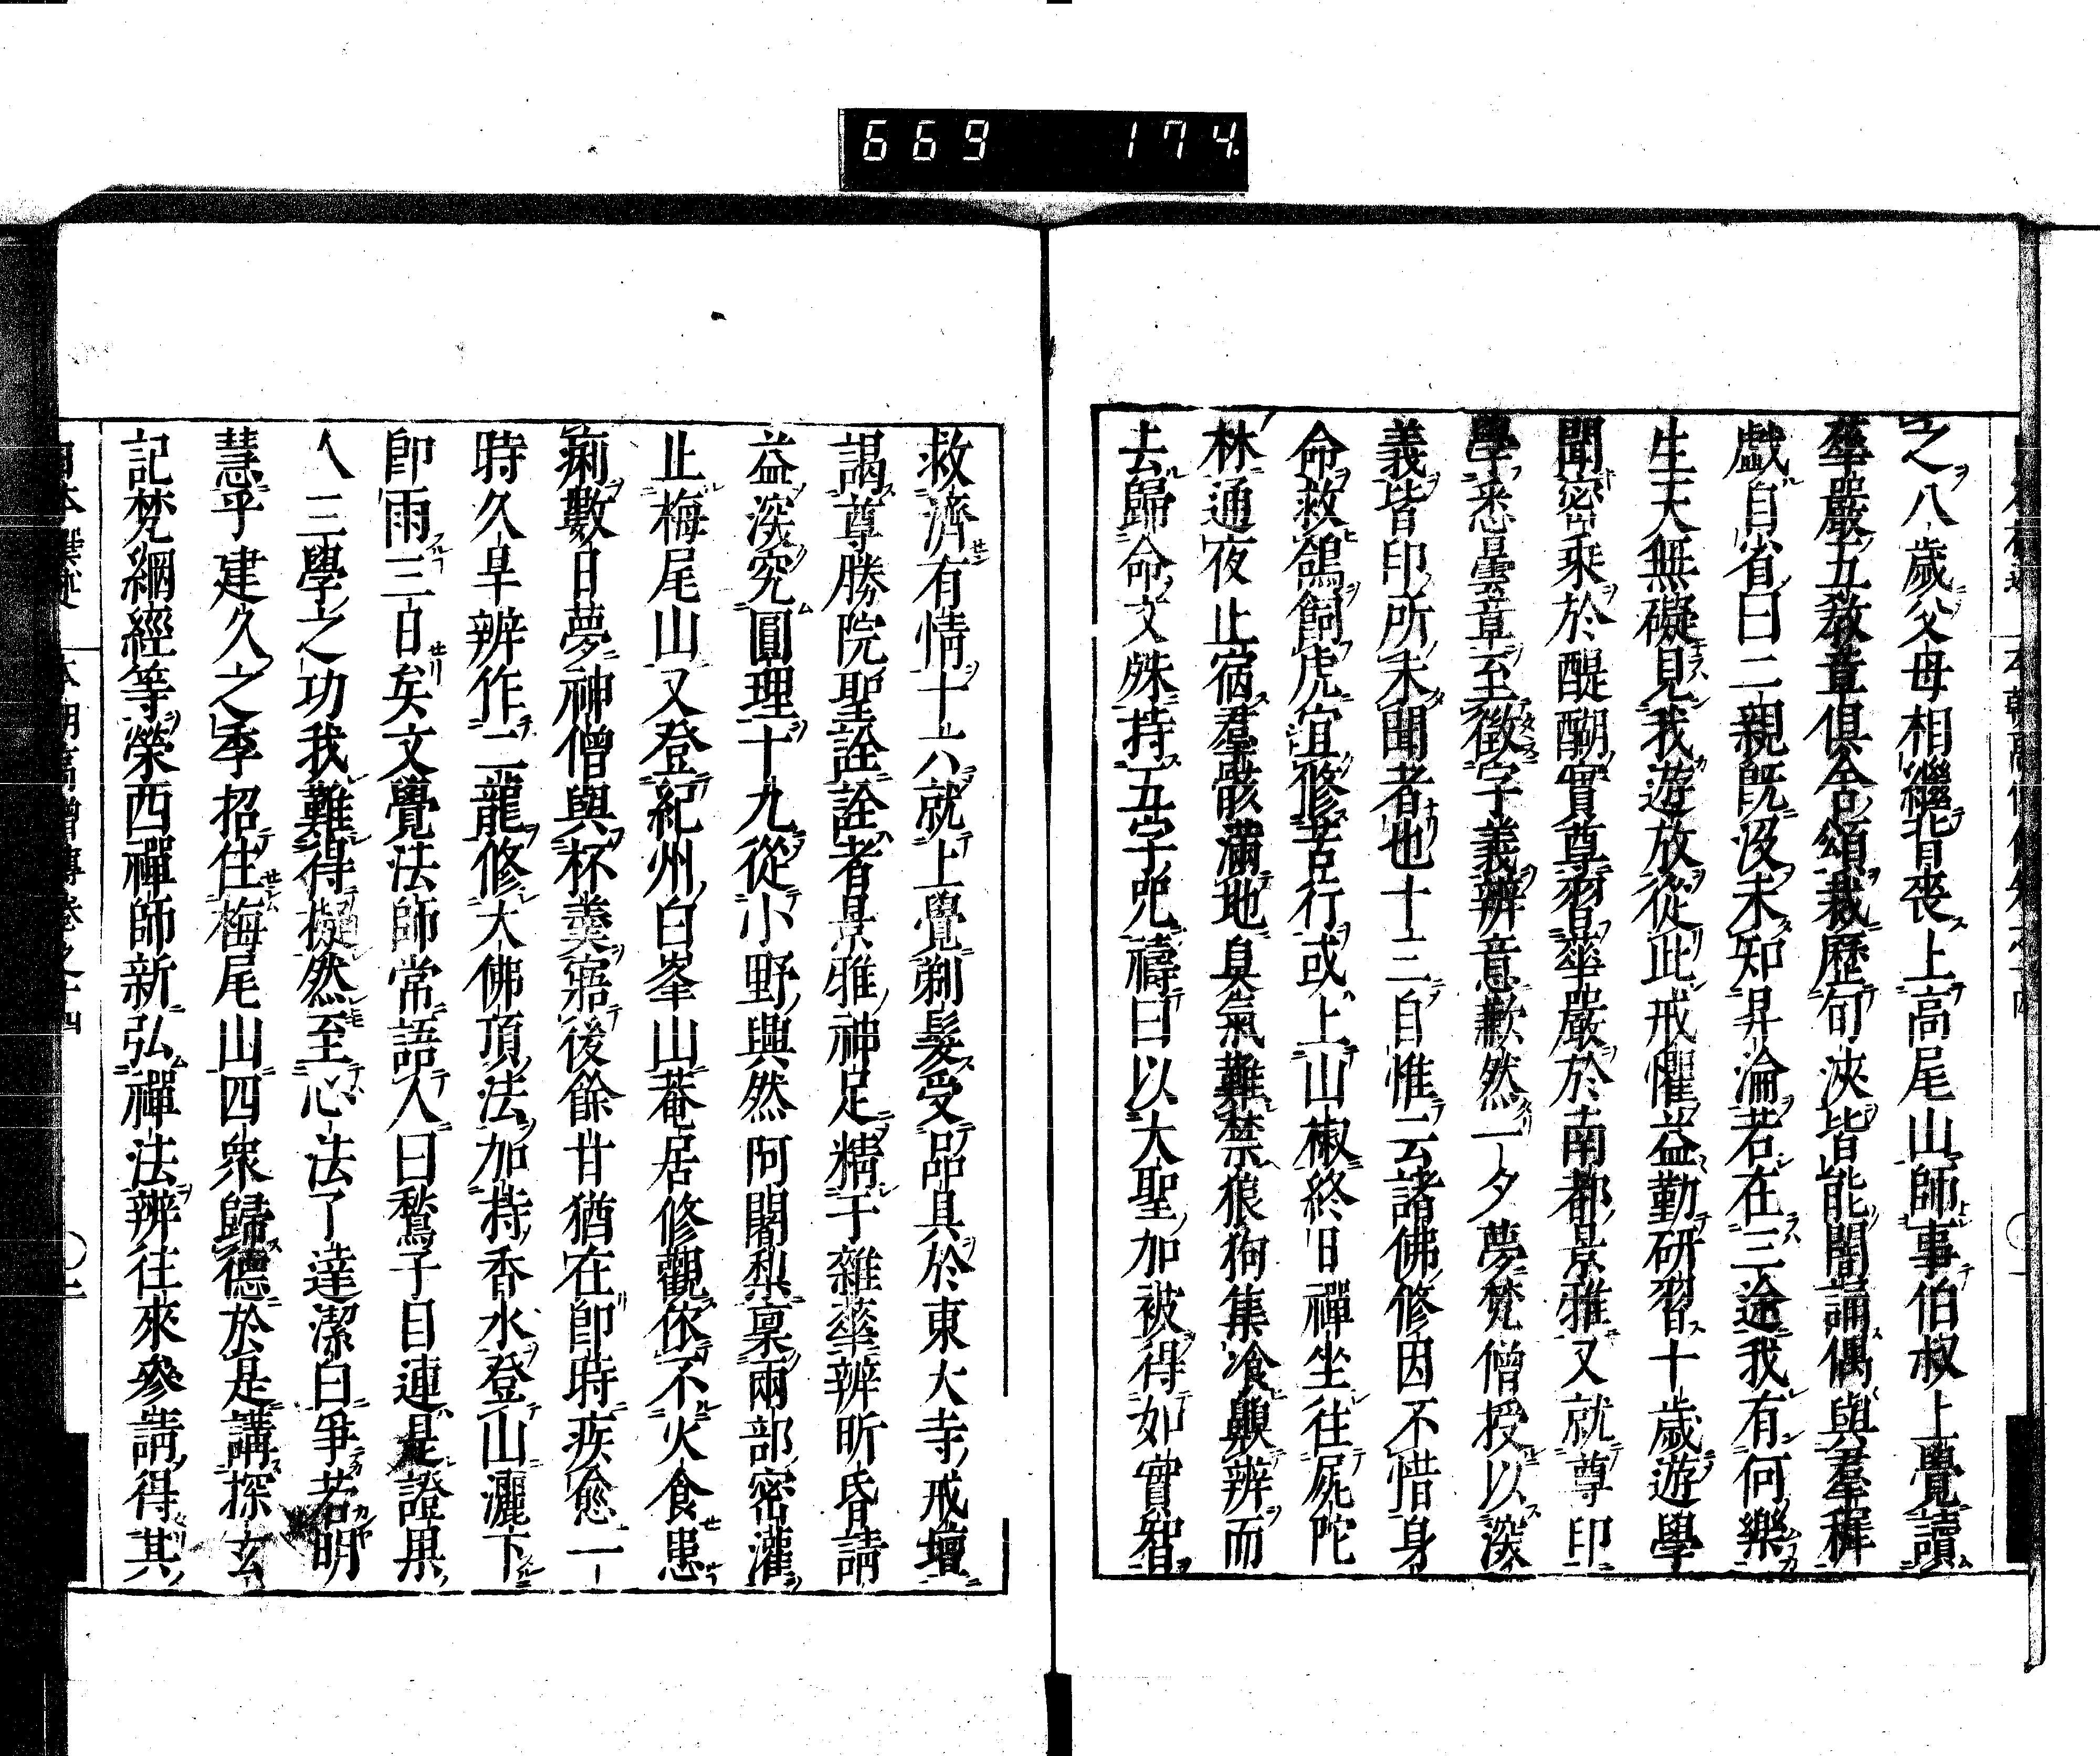 669 174
之八歲父母相繼背喪上高尾山師事伯叔上覺讀
華嚴五敎章俱舍頌裁歷旬浹皆能闇誦偶與羣稺
戲自省曰二親旣沒未知昇淪若在三途我有何樂
生天無礙見我遊放從此戒懼益勤研習十歲遊學
聞密乘於醍醐實尊習華嚴於南都景雅又就尊印
學悉曇章至徵字義辨意歉然一夕夢梵僧授以深
義皆印所未聞者也十三自惟云諸佛修因不惜身
命救鴿飼虎宜修苦行或上山椒終日禪坐往屍陀
林通夜止宿羣骸滿地臭氣難禁狼狗集飡齅辨而
去歸命文殊持五字咒禱曰以大聖加被得如實智
救濟有情十六就上覺剃髮受品具於東大寺戒壇
謁尊勝院聖詮詮者景雅神足精于雜華辨昕昏請
益深究圓理十九從小野與然阿闍梨稟兩部密灌
止梅尾山又登紀州白峯山菴居修觀依不火食患
痢數日夢神僧與杯羹寤後餘甘猶在卽時疾愈一
時久旱辨作二龍修大佛頂法加持香水登山灑下
卽雨三日矣文覺法師常語人曰鶖子目連是證果
人三學之功我難得擬然至心法了達潔白爭若明
慧乎建久之季招住梅尾山四衆歸德於是講探玄
記梵網經等榮西禪師新弘禪法辨往來參請得其